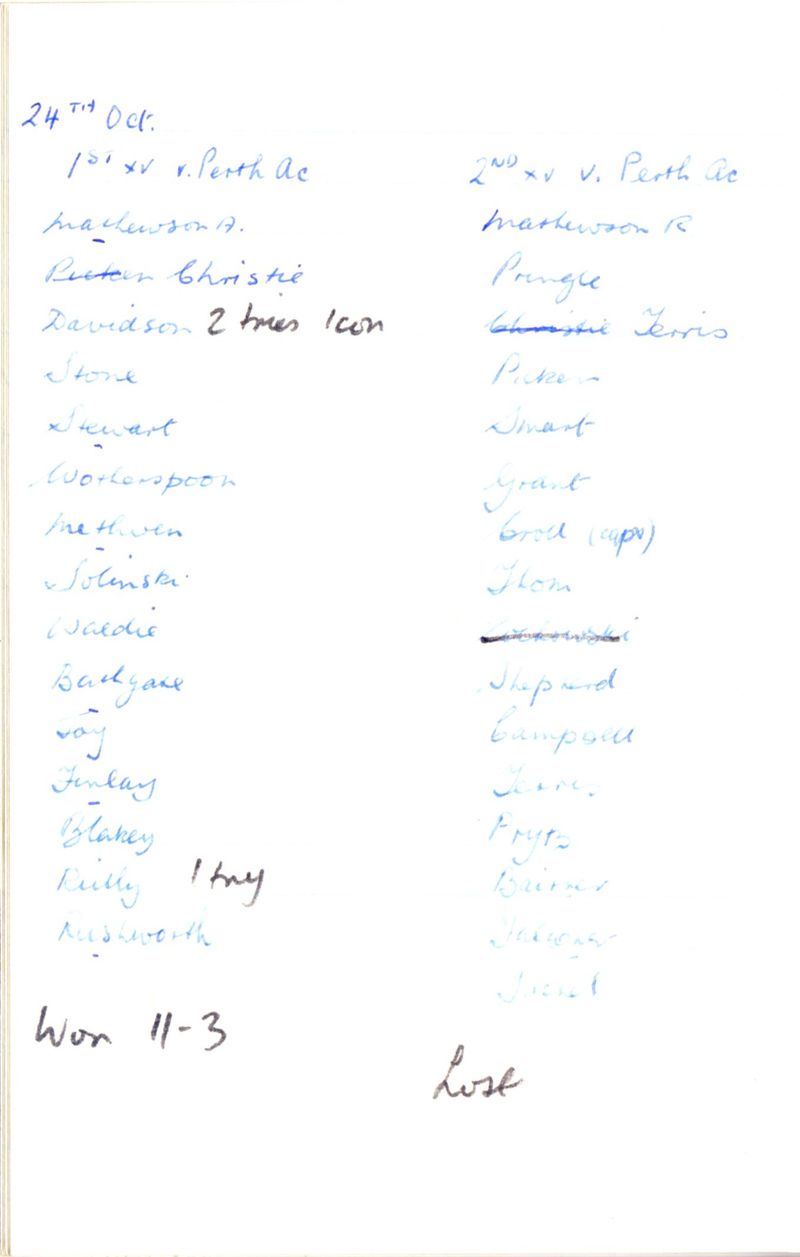 24TH Oct.
1ST XV v. Perth Ac
Mathewson A.
Picken Christie
Davidson 2 tries 1 con
Stone
Stewart
Wotherspoon
Methven
Solinski
Waldie
Bathgate
Joy
Finlay
Blakey
Reilly 1 try
Rushworth
Won 11-3
2ND XV v. Perth Ac
Mathewson R
Pringle
Christie Ferris
Picken
Smart
Grant
Croll (capt)
Thom
Shepherd
Campbell
Ferris
Prytz
Falconer
Lost